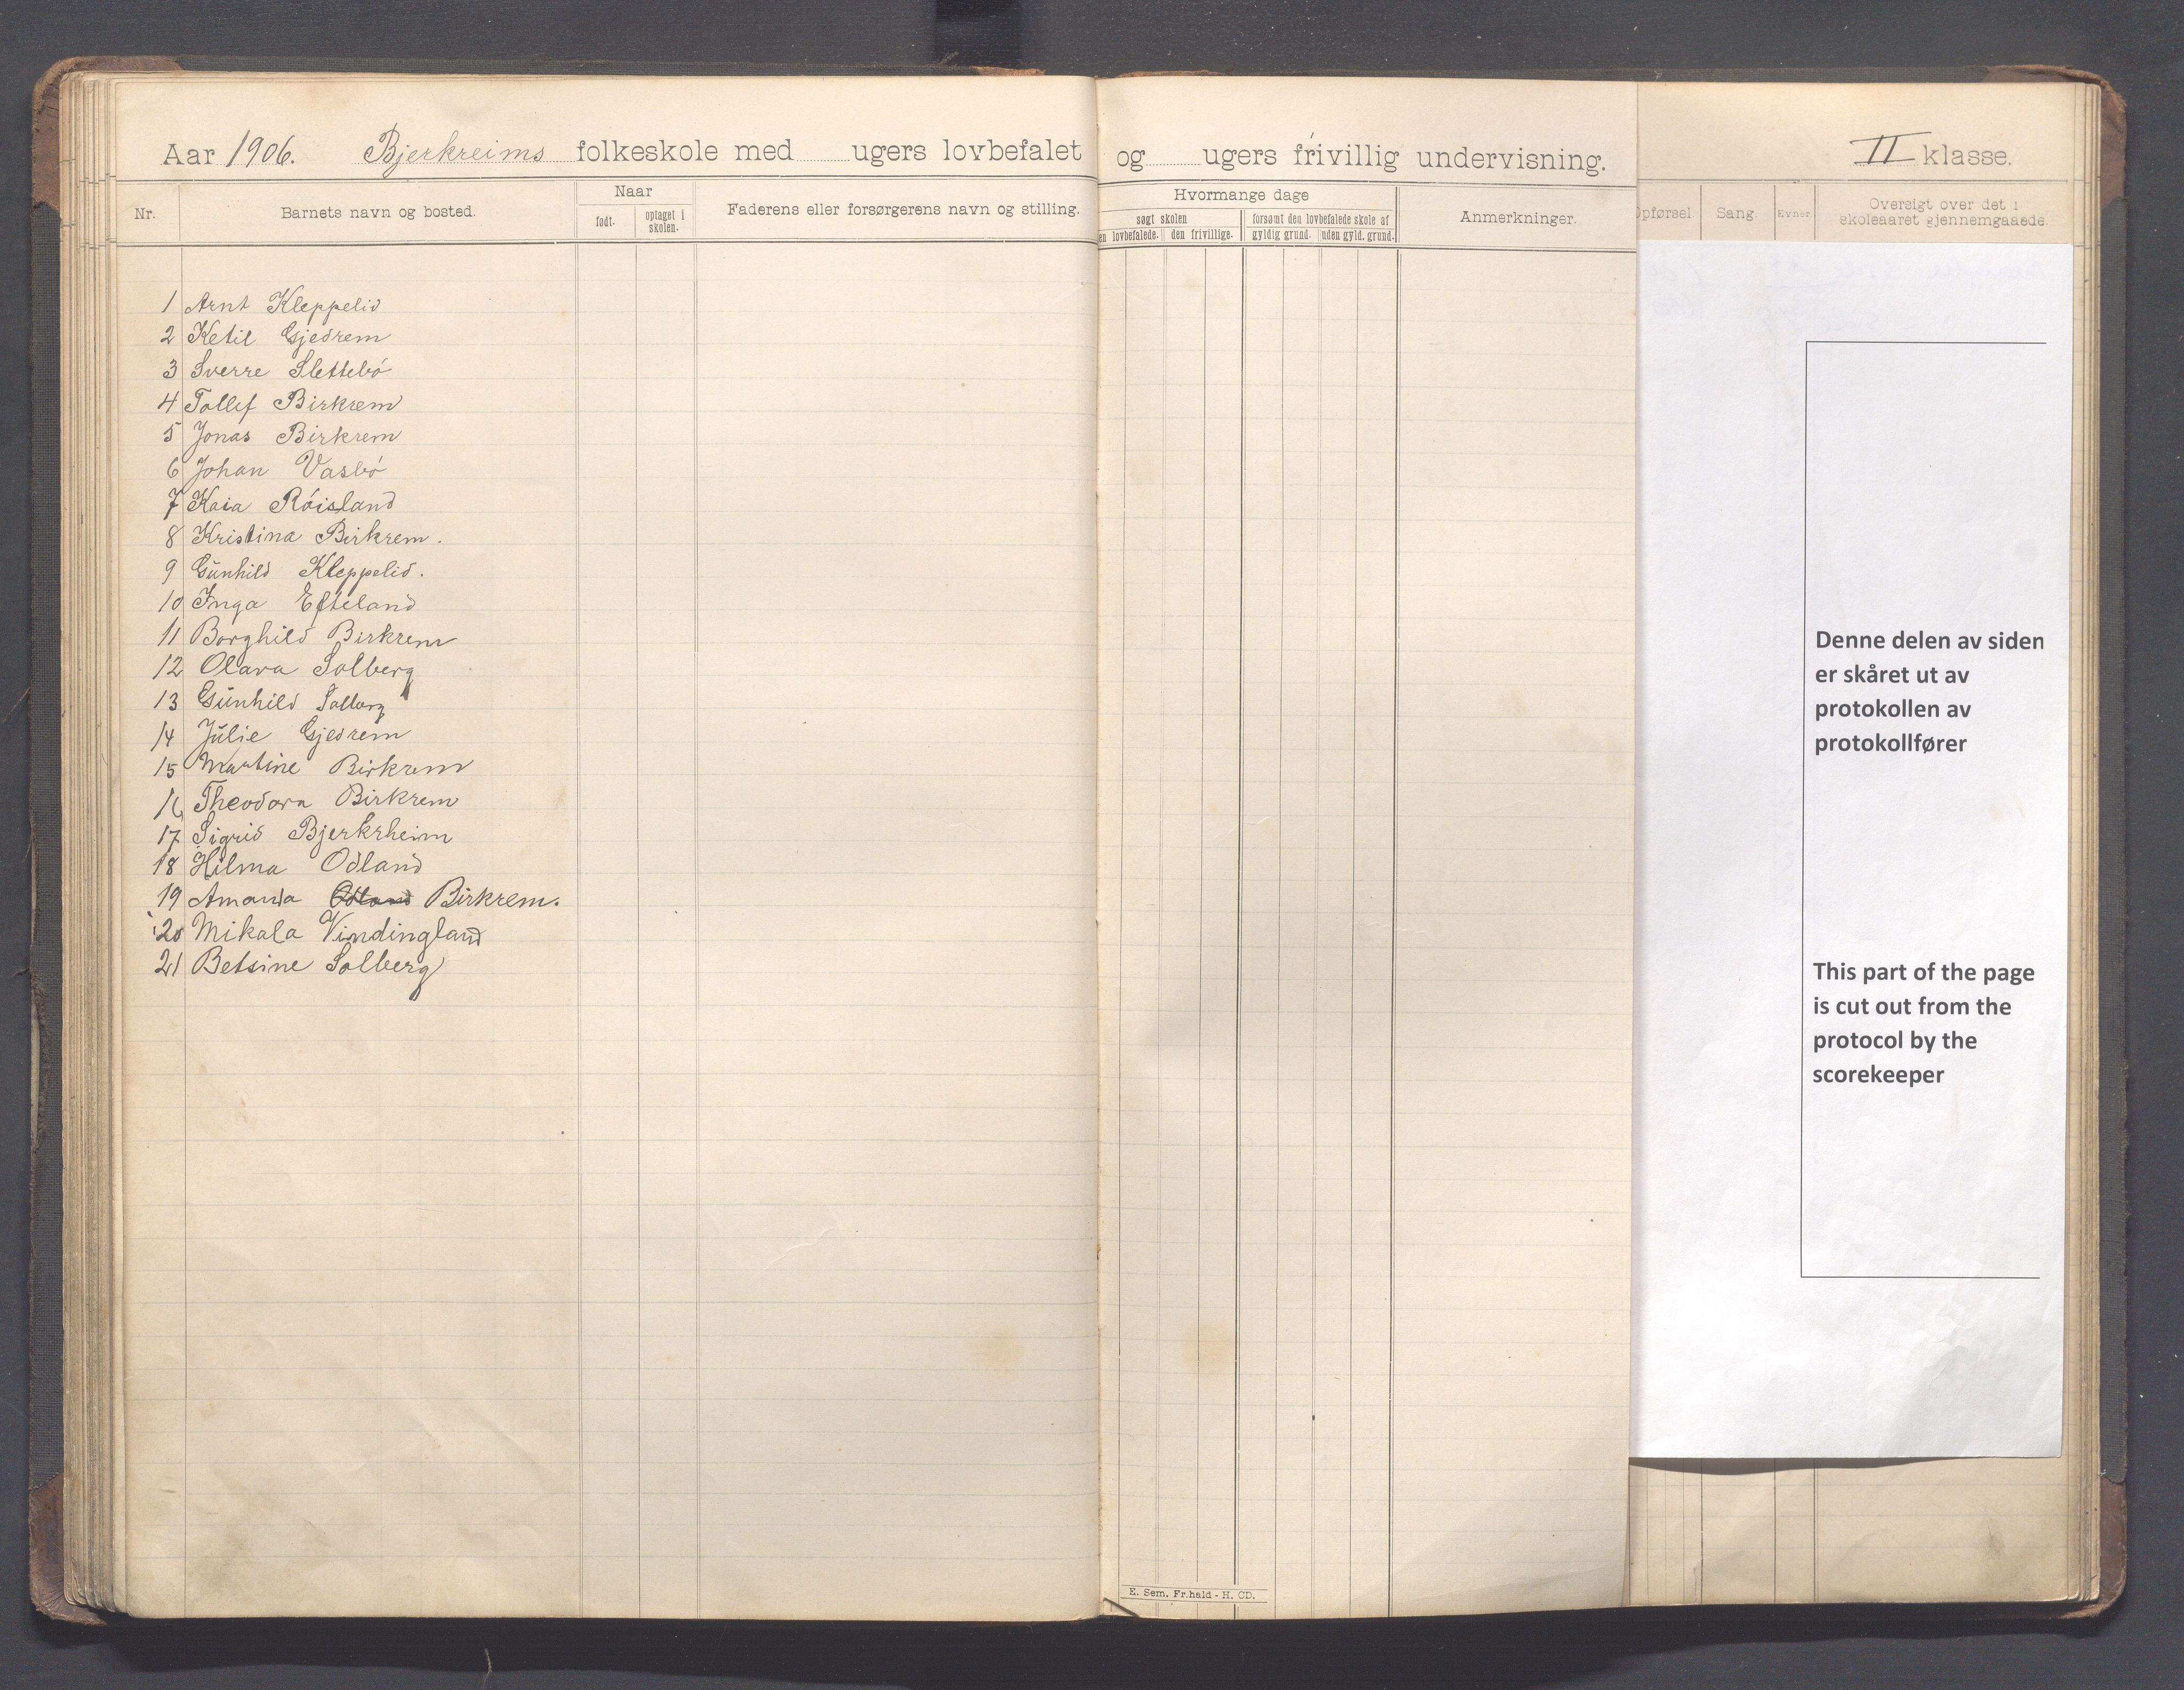 Aar 1906. Bjerkreims folkeskole med ugers lovbefalet og ugers frivillig undervisning. II klasse.
Nr.
Barnets navn og bosted.
Naar
født.
optaget i skolen.
Faderens eller forsørgerens navn og stilling.
Hvormange dage
søgt skolen
en lovbefalede.
den frivillige.
forsømt den lovbefalede skole af
gyldig grund.
uden gyld. grund.
Anmerkninger.
Opførsel.
Sang.
Evner
Oversigt over det i
skoleaaret gjennemgaaede.
1 Arnt Kleppelid
2 Ketil Gjedrem
3 Sverre Slettebó
4 Tollef Birkrem
5 Jonas Birkrem
6 Johan Vasbó
7 Kaia Róisland
8 Kristina Birkrem.
9 Gunhild Kleppelid.
10 Inga Efteland
11 Borghild Birkrem
12 Olava Solberg
13 Gunhild Solberg
14 Julie Gjedrem
15 Martine Birkrem
16 Theodora Birkrem
17 Sigrid Bjerkrheim
18 Hilma Odland
19 Amanda Odland Birkrem.
20 Mikala Vindingland
21 Betsine Solberg
Denne delen av siden
er skåret ut av
protokollen av
protokollfører
This part of the page
is cut out from the
protocol by the
scorekeeper
E. Sem. Fr.hald - H. CD.